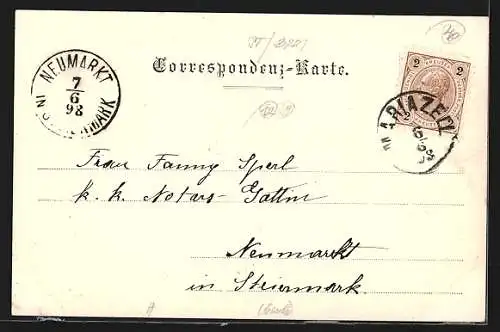 NEUMARKT
7
6
98
IN STEIERMARK
Correspondenz-Karte.
2 2
MARIAZELL
6
Frau Fanny Sperl
k. k. Notars-Gattin
Neumarkt
in Steiermark.